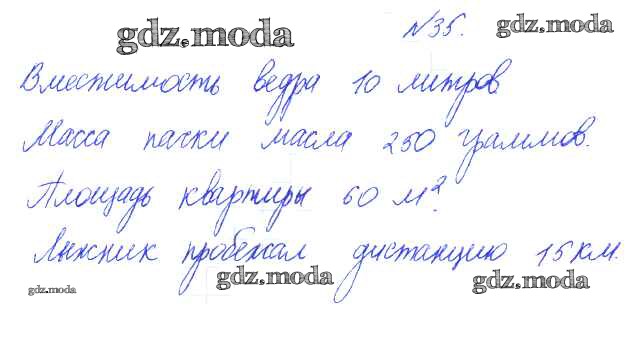 gdz.moda №35. gdz.moda
Вместимость ведра 10 литров
Масса пачки масла 250 граммов.
Площадь квартиры 60 м².
Лыжник пробежал дистанцию 15 км.
gdz.moda gdz.moda gdz.moda